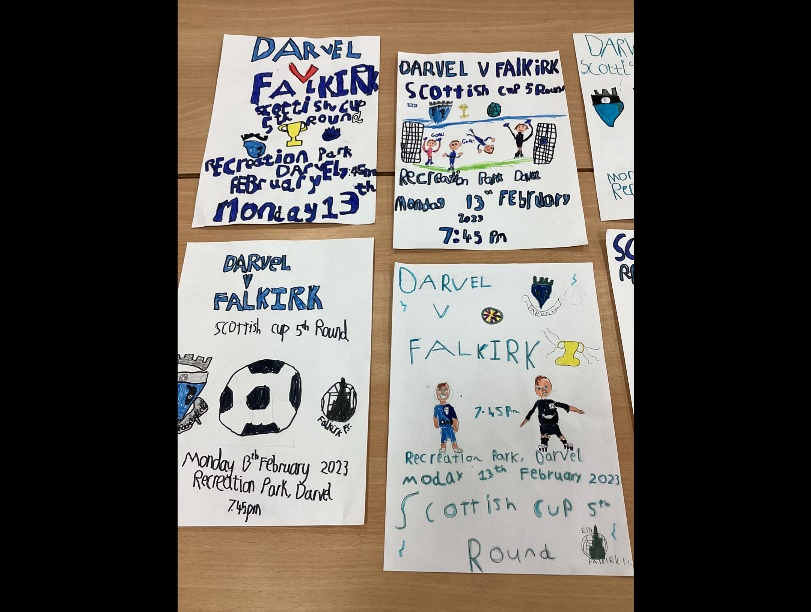 DARVEL
V
FALKIRK
Scottish cup
5th Round
RECreation Park
DARVEL 7:45pm
FEBruary
Monday 13th
DARVEL V FALKIRK
Scottish cup 5 Round
GOAL!
GOAL!
Recreation Park Darvel
Mondey 13th FEbruary
2023
7:45 Pm
DARV
SCOttis
Mon
Rec
DARVEL
V
FALKIRK
Scottish cup 5th Round
FALKIRK FC
Monday 13th February 2023
Recreation Park, Darvel
7.45pm
DARVEL
V
FALKIRK
7.45Pm
Recreation Park, Darvel
moday 13th February 2023
Scottish cup 5th
Round
FALKIRK
SC